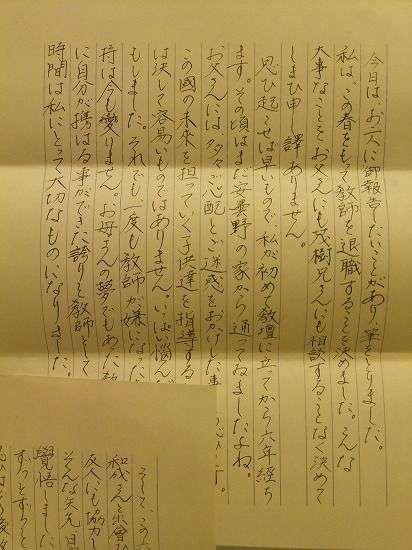 今日は、お二人に御報告したいことがあり筆をとりました。
私は、この春をもって教師を退職することを決めました。こんな
大事なことをお父さんにも茂樹兄さんにも相談することなく決めて
しまひ申し訳ありません。
思ひ起こせば早いもので、私が初めて教壇に立ってから六年経ち
ます。その頃はまだ安曇野の家から通ってゐましたよね。
お父さんには多々ご心配とご迷惑をおかけした事
この國の未来を担っていく子供達を指導する
は決して容易いものではありません。いっぱい悩んだ
もしました。それでも一度も教師が嫌になった
持は今も変りません。お母さんの夢でもあった教
に自分が携はる事ができた誇りと教師として
時間は私にとって大切なものになりました。
そして、この六
和成さんと出會ひ
反人にも協力し
そんな矢先、日
覺悟しました
ずっとずっと